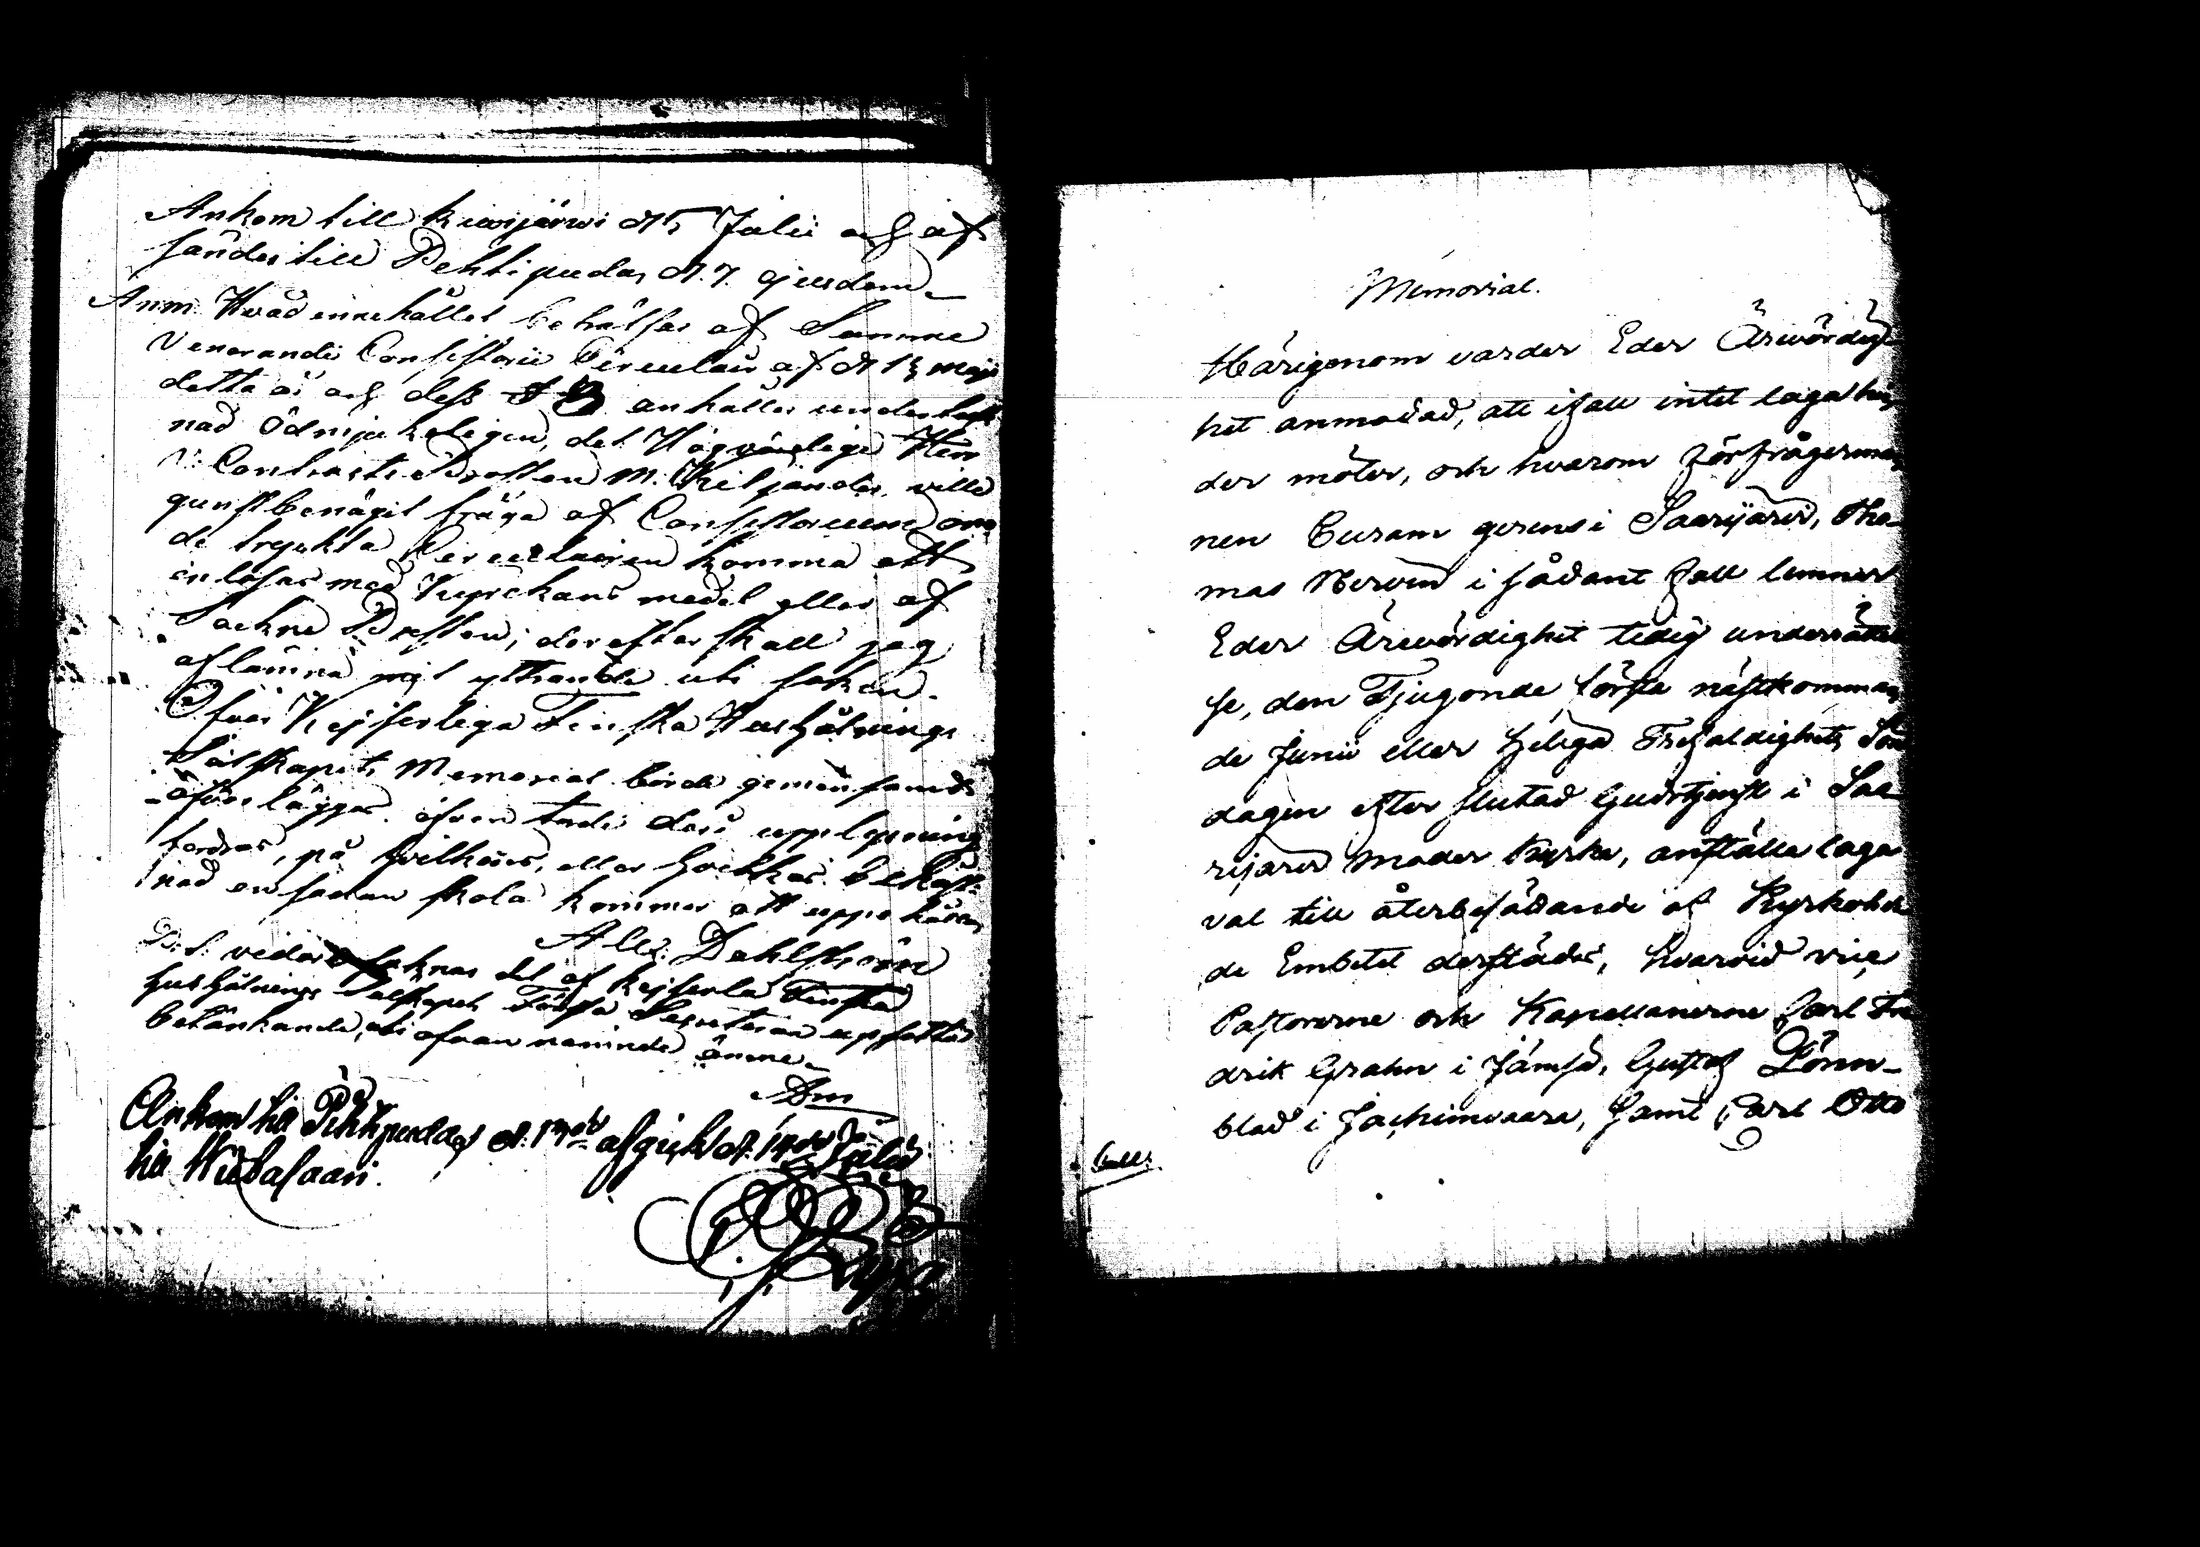 Ankom till Kiwijärwi d 5 Julii och af
sändes till Pihtipudas d. 7. ejusdem
Anm. Hvad innehållet beträffar af Samma
Venerandi Consistorii Circulair af d 13 maji
detta år och dess anhålles
nad Ödmjukeligen, det Högvördige Herr
V. Contracts Prosten M. Kiljander, wille
gunstbenägit fråga af Consistorium om
de tryckta Circulairen komma att
inlösas med Kyrckans medel eller af
Sockne Presten; derefter skall jag
aflämna mit yttrande uti saken.
Öfver Kejserliga Finska Hushålnings
Sälskapets Memorial borde gemensamt
öfverläggas. äfven torde dess upplysning
fordras, på hvilkens, eller hvilkas bekost-
nad en sådan skola kommer att uppehållas
Alex: Dahlström
P.S. vidare saknas det af Kejserla Finska
Hushålnings Sälskapets Första Secreterare upsatta
betänkande, uti ofvan nämnde ämne.
Dm
Ankom till Pihtipudas d. 13de afgick d. 14de Julii
till Wiitasaari.
Memorial.
Härigenom varder Eder Ärevördig
het anmodad, att ifall intet laga hin
der möter, och hvarom förfrågerman
nen Curam gerens i Saarijärvi, Tho
mas Nervin i sådant fall lemner
Eder Ärevördighet tidig underrättel
se, den Tjugonde första nästkomman
de Junii eller Heliga Trefaldighets Sön
dagen efter slutad Gudstjenst i Saa
rijärvi Moder Kyrka, anställa laga
val till återbesättande af Kyrkoher
de Embetet derstädes, hvarvid vice
Pastorerne och Kapellanerne Carl Fre
drik Grahn i Jämsä, Gustaf Lönn-
blad i Jachimvaara, samt Carl Otto